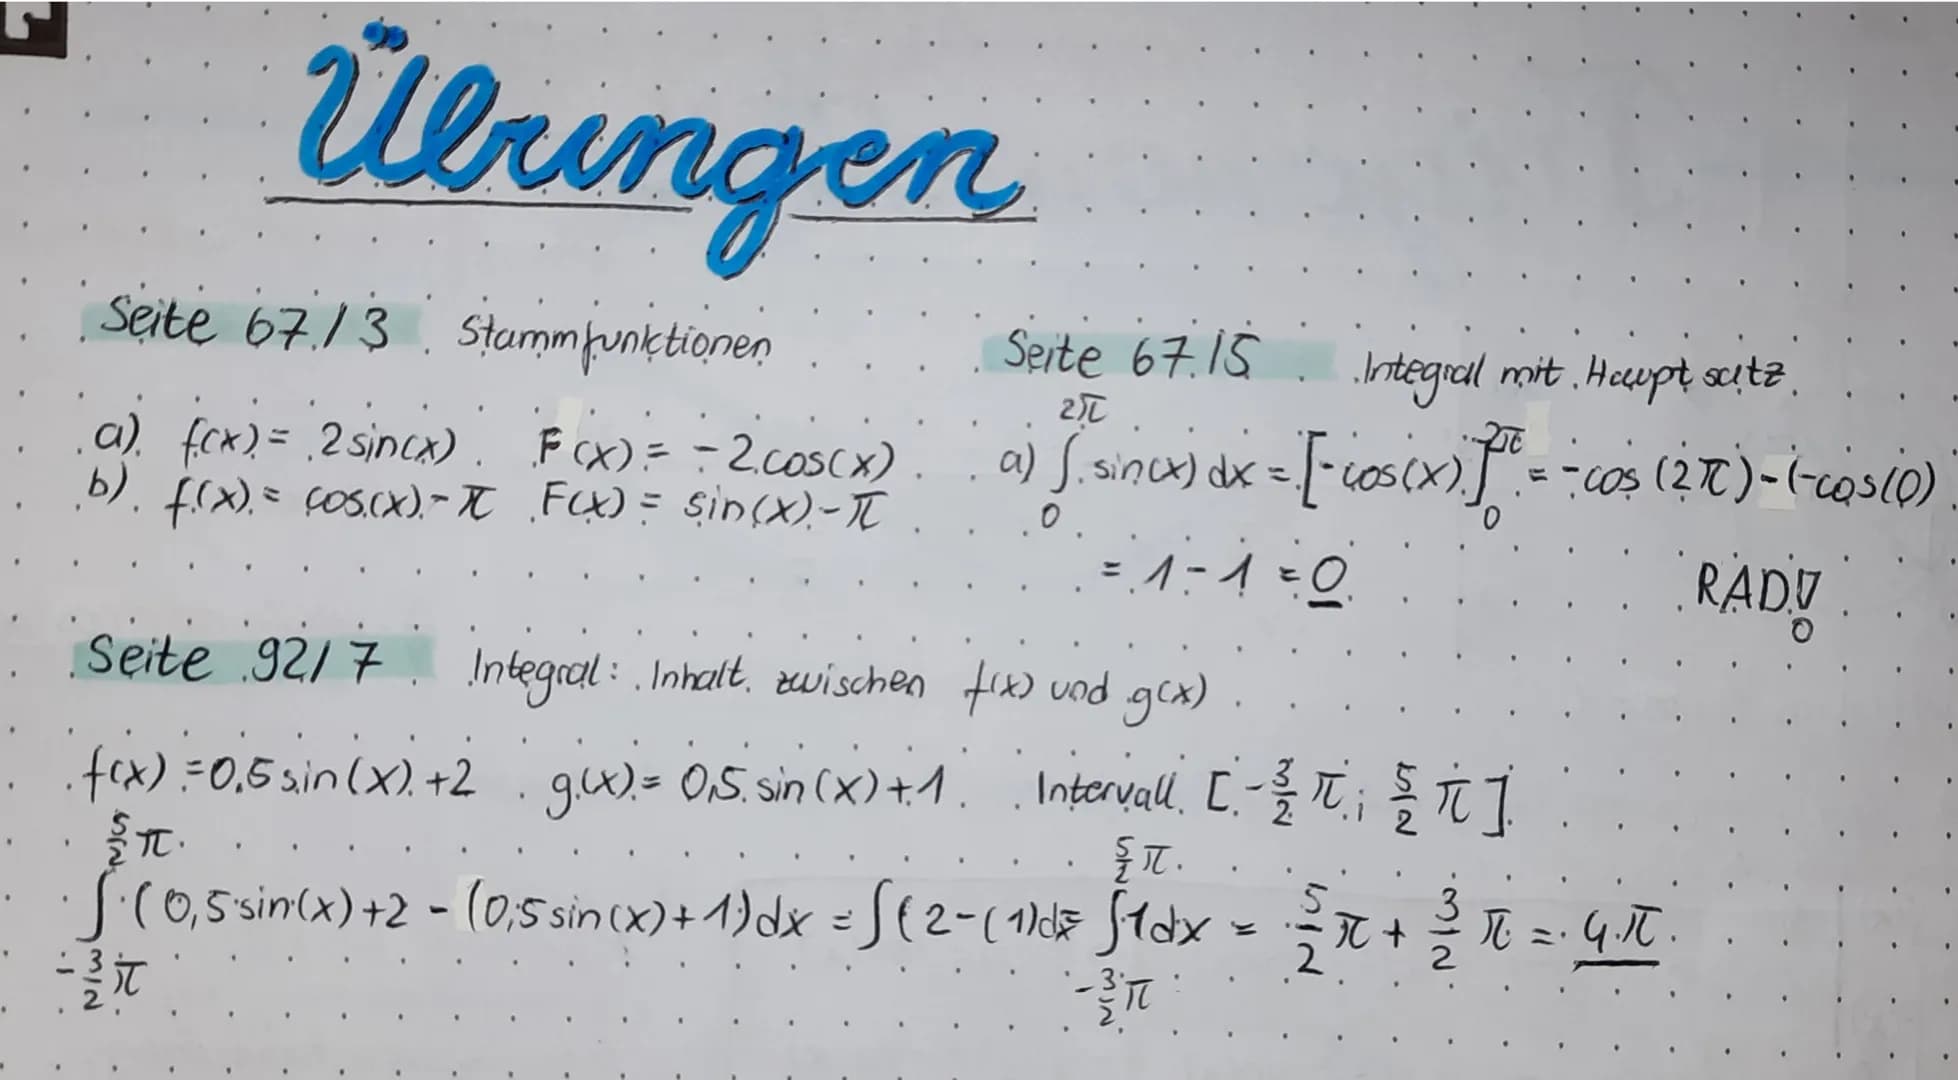 Übungen
Seite 67/3 Stammfunktionen
a) f(x) = 2 sin(x) F(x) = -2 cos(x)
b) f(x) = cos(x) - π F(x) = sin(x) - π
Seite 67/5 Integral mit Hauptsatz
a) ∫₀^2π sin(x) dx = [-cos(x)]₀^2π = -cos(2π) - (-cos(0)
= 1 - 1 = 0
RAD!
Seite 92/7 Integral: Inhalt zwischen f(x) und g(x)
f(x) = 0,5 sin(x) + 2 g(x) = 0,5 sin(x) + 1 Intervall [-3/2 π; 5/2 π]
∫_{-3/2 π}^{5/2 π} (0,5 sin(x) + 2 - (0,5 sin(x) + 1) dx = ∫(2 - (1) dx = ∫_{-3/2 π}^{5/2 π} 1 dx = 5/2 π + 3/2 π = 4π